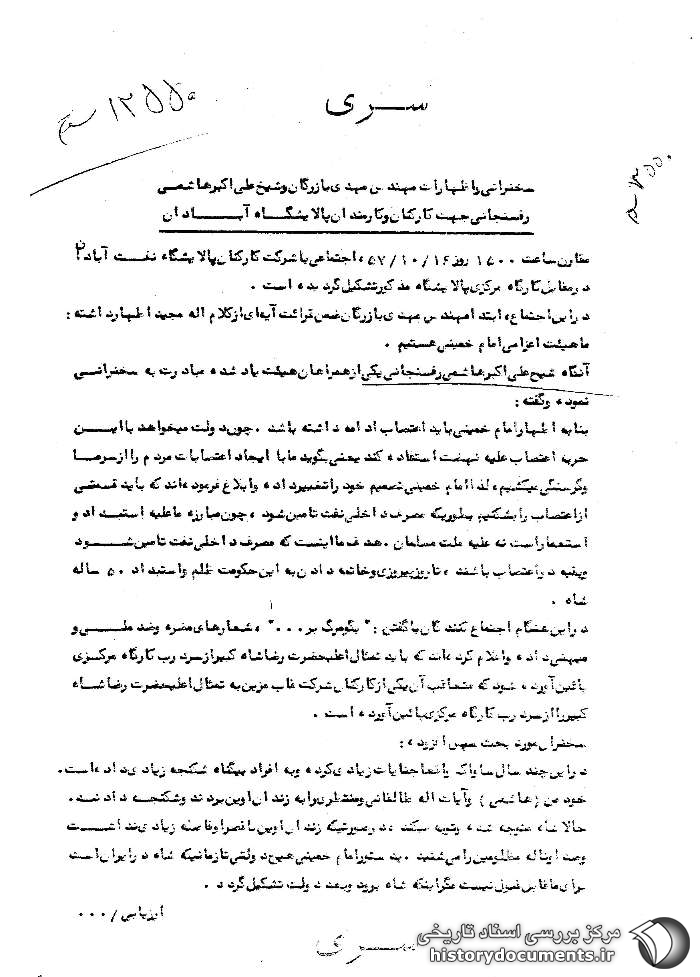 سری
۱۲۵۵۰
۳۵۵۰
سخنرانی و اظهارات مهندس مهدی بازرگان و شیخ علی اکبر هاشمی
رفسنجانی جهت کارکنان و کارمندان پالایشگاه آبادان
مقارن ساعت ۱۵۰۰ روز ۵۷/۱۰/۱۶، اجتماعی با شرکت کارکنان پالایشگاه نفت آبادان
در مقابل کارگاه مرکزی پالایشگاه مذکور تشکیل گردیده است .
در این اجتماع، ابتدا مهندس مهدی بازرگان ضمن قرائت آیه‌ای از کلام اله مجید اظهار داشته :
ما هیئت اعزامی امام خمینی هستیم .
آنگاه شیخ علی اکبر هاشمی رفسنجانی یکی از همراهان هیئت یاد شده مبادرت به سخنرانی
نموده و گفته :
بنا به اظهار امام خمینی باید اعتصاب ادامه داشته باشد . چون دولت میخواهد با این
حربه اعتصاب علیه نهضت استفاده کند یعنی بگوید ما با ایجاد اعتصابات مردم را از سرما
و گرسنگی میکشیم، لذا امام خمینی تصمیم خود را تغییر داده و ابلاغ فرموده‌اند که باید قسمتی
از اعتصاب را بشکنیم بطوریکه مصرف داخلی نفت تامین شود ، چون مبارزه ما علیه استبداد و
استعمار است نه علیه ملت مسلمان . هدف ما اینست که مصرف داخلی نفت تامین شود
و بقیه در اعتصاب باشند ، تا روز پیروزی و خاتمه دادن به این حکومت ظلم و استبداد ۵۰ ساله
شاه .
در این هنگام اجتماع کنندگان با گفتن : " بگو مرگ بر ... " ، شعارهای مضره و ضد ملی و
میهنی داده و اعلام کرده‌اند که باید تمثال اعلیحضرت رضا شاه کبیر از سر درب کارگاه مرکزی
پائین آورده شود که متعاقب آن یکی از کارکنان شرکت قاب مزین به تمثال اعلیحضرت رضا شاه
کبیر را از سر درب کارگاه مرکزی پائین آورده است .
سخنران مورد بحث سپس افزوده :
در این چند سال ساواک واقعا جنایات زیادی کرده و به افراد بیگناه شکنجه زیادی داده است.
خود من (هاشمی) و آیات اله طالقانی و منتظری را به زندان اوین بردند و شکنجه دادند.
حالا شاه متوجه شده و توبه میکند ، در صورتیکه زندان اوین با قصر او فاصله زیادی نداشت
و صدا و ناله مظلومین را می‌شنید . به دستور امام خمینی هیچ دولتی تا زمانیکه شاه در ایران است
برای ما قابل قبول نیست مگر اینکه شاه برود و بعد دولت تشکیل گردد .
ارزیابی / ۰۰۰
سری
مرکز بررسی اسناد تاریخی
historydocuments.ir